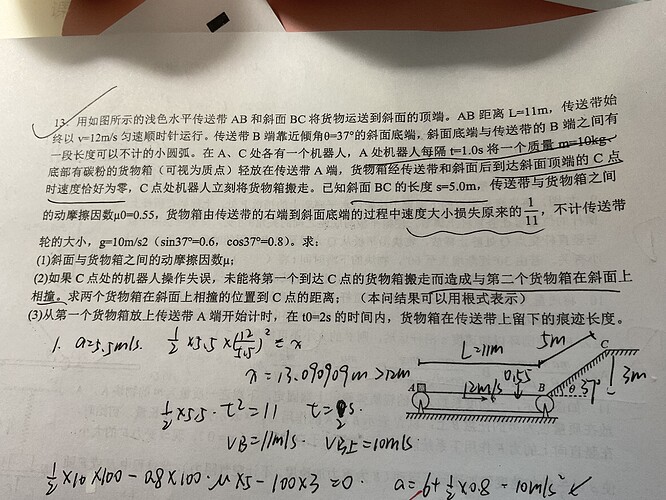 13. 用如图所示的浅色水平传送带 AB 和斜面 BC 将货物运送到斜面的顶端。AB 距离 L=11m，传送带始
终以 v=12m/s 匀速顺时针运行。传送带 B 端靠近倾角θ=37°的斜面底端，斜面底端与传送带的 B 端之间有
一段长度可以不计的小圆弧。在 A、C 处各有一个机器人，A 处机器人每隔 t=1.0s 将一个质量 m=10kg、
底部有碳粉的货物箱（可视为质点）轻放在传送带 A 端，货物箱经传送带和斜面后到达斜面顶端的 C 点
时速度恰好为零，C 点处机器人立刻将货物箱搬走。已知斜面 BC 的长度 s=5.0m，传送带与货物箱之间
的动摩擦因数μ0=0.55，货物箱由传送带的右端到斜面底端的过程中速度大小损失原来的1/11，不计传送带
轮的大小，g=10m/s2（sin37°=0.6，cos37°=0.8）。求：
(1)斜面与货物箱之间的动摩擦因数μ；
(2)如果 C 点处的机器人操作失误，未能将第一个到达 C 点的货物箱搬走而造成与第二个货物箱在斜面上
相撞。求两个货物箱在斜面上相撞的位置到 C 点的距离；（本问结果可以用根式表示）
(3)从第一个货物箱放上传送带 A 端开始计时，在 t0=2s 的时间内，货物箱在传送带上留下的痕迹长度。
1. a=5.5m/s. ½×5.5×(12/5.5)² = x
x=13.090909m >12m
½×5.5·t²=11 t=2s.
VB=11m/s VB上=10m/s
½×10×100-0.8×100·μ×5-100×3=0. a=6+½×0.8=10m/s²
L=11m
5m
C
0.55
A
12m/s
B
θ
37°
3m